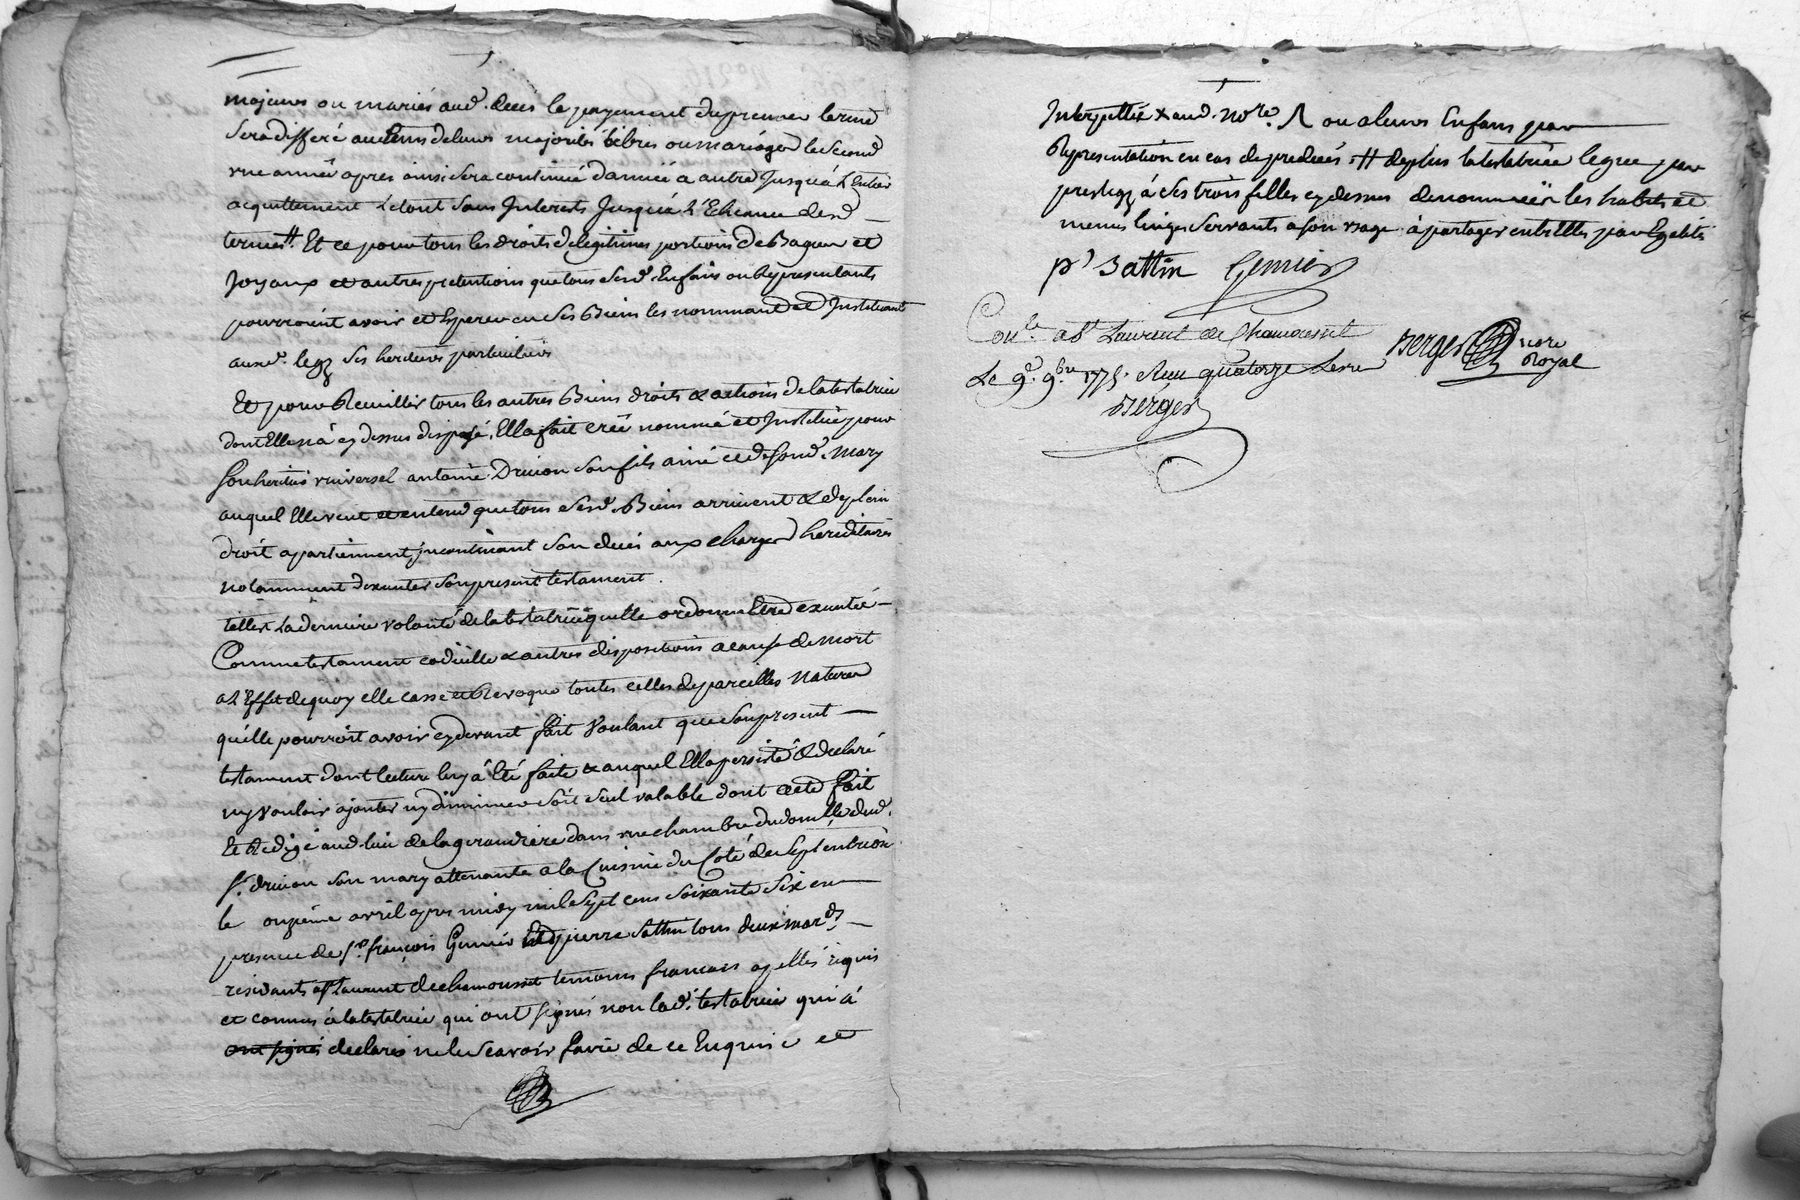 majeurs ou mariés aud. deces le payement du premier terme
sera differé au tems de leurs majorités libres ou mariages le second
une année apres ainsi sera continué d'année a autre Jusquá L'Entier
acquittement Letout sans Interets Jusqua L'Echeance desd
termes # Et ce pour tous les droits de legitimes portions De Bagues et
Joyaux et autres pretentions que tous sesd. Enfans ou Representants
pourroient avoir et Esperer en ses Biens les nommant et Instituant
auxd. legz ses heritiers particuliers
Et pour Recueillir tous les autres Biens droits & actions de la testatrice
dont Elle n'á cy dessus disposé, Ella fait creé nommé et Institué pour
son heritier universel antoine Drivon son fils ainé et desond. Mary
auquel Elle veut et entend que tous sesd. Biens arrivent & de plein
droit apartiennent jncontinant son deces aux charges hereditaires
notamment dexecuter son present testament.
telle est La derniere volonté de la testatrice quelle ordonne Etre executeé
Comme testament codicille & autres dispositions a cause de Mort
a L'Effet de quoy elle casse et Revoque toutes celles de pareilles Natures
quélle pourroit avoir cydevant fait Voulant que son present
testament dont lecture luy á Eté faite & auquel Ella persisté & declaré
ny vouloir ajouter ny diminuer soit seul valable dont acte fait
Et Redigé aud. lieu de la gerandiere dans une chambre du domlle. dud.
sr. drivon son mary attenante a la Cuisine du Coté de Septentrion
le onzieme avril apres midy mil Sept cens Soixante Six en
presence de sr. françois Genier Et pierre Sattin tous deux mards.
residants a st Laurent de chamousset temoins francais apellés requis
et connus á la testatrice qui ont signés non lad. testatrice qui á
ont signés declaré ne le Scavoir faire de ce Enquise et
Interpellée & aud. nore. Λ ou aleurs Enfans par
Representation en cas de predecés :# de plus la testatrice legue par
prelegz á ses trois filles cy dessus denommeés les habits et
menus linges servants a son usage á partager entr'Elles par Egalité
pr Sattin Genier
Conlé. a st Laurent de Chamousset
Le 9e. 9bre. 1775. Reçu quatorze Livres
Berger
Berger nore
Royal